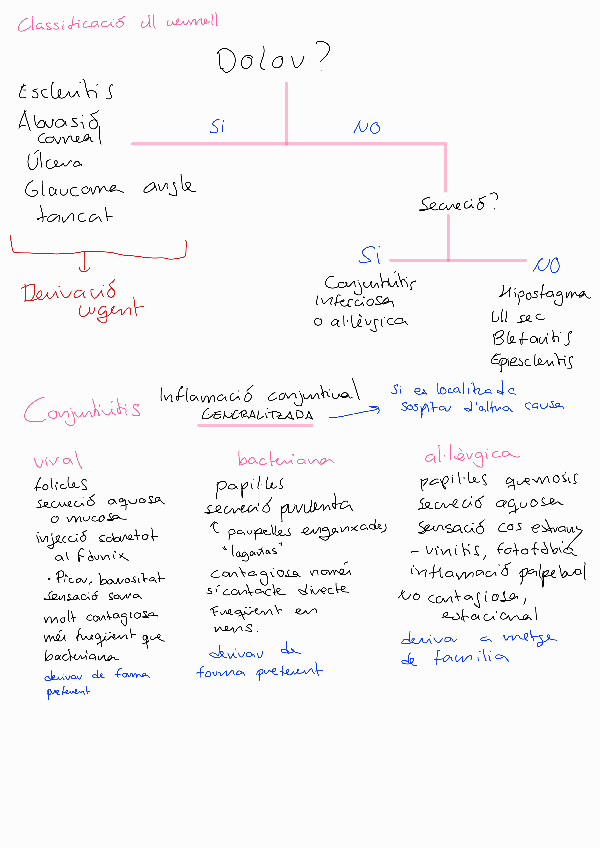 Classificació ull vermell
Dolor?
Escleritis
Abrasió
corneal
Úlcera
Glaucoma angle
tancat
Derivació
urgent
Si
NO
Secreció?
Si
Conjuntivitis
infecciosa
o al·lèrgica
NO
Hipostagma
Ull sec
Blefaritis
Epiescleritis
Conjuntivitis
Inflamació conjuntival
GENERALITZADA
Si es localitzada
sospitar d'altra causa
viral
folicles
secreció aquosa
o mucosa
injecció sobretot
al fòrnix
• Picor, borrositat
sensació sorra
molt contagiosa
més freqüent que
bacteriana
derivar de forma
preferent
bacteriana
papil·les
secreció purulenta
↑ parpelles enganxades
"lagañas"
contagiosa només
si contacte directe
Freqüent en
nens.
derivar de
forma preferent
al·lèrgica
papil·les quemosis
secreció aquosa
sensació cos estrany
- rinitis, fotofòbia
inflamació palpebral
No contagiosa,
estacional
derivar a metge
de familia